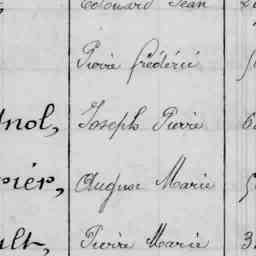 Edouard Jean
Pierre frédéric
gnol, Joseph Pierre
rier, Auguse Marie
ult, Pierre Marie